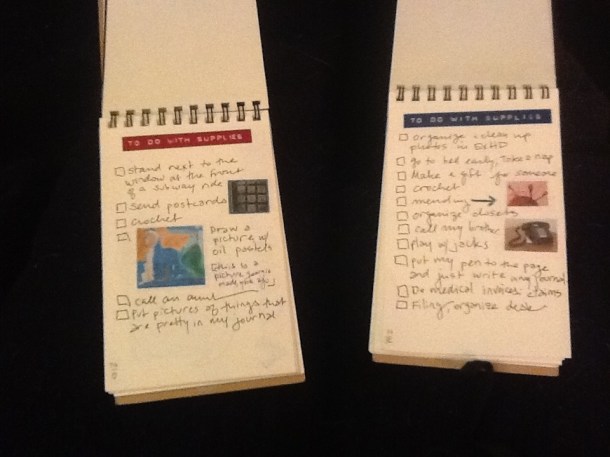 TO DO WITH SUPPLIES
stand next to the
window at the front
of a subway ride
send postcards
crochet
Draw a
picture w/
oil pastels
this is a
picture
made
call an aunt
Put pictures of things that
are pretty in my journal
TO DO WITH SUPPLIES
organize + clean up
photos in
go to bed early, Take a nap
Make a gift for someone
crochet
mending →
organize closets
call my brother
play w/ jacks
put my pen to the page
and just write my journal
Do medical invoices claims
Filing, organize desk